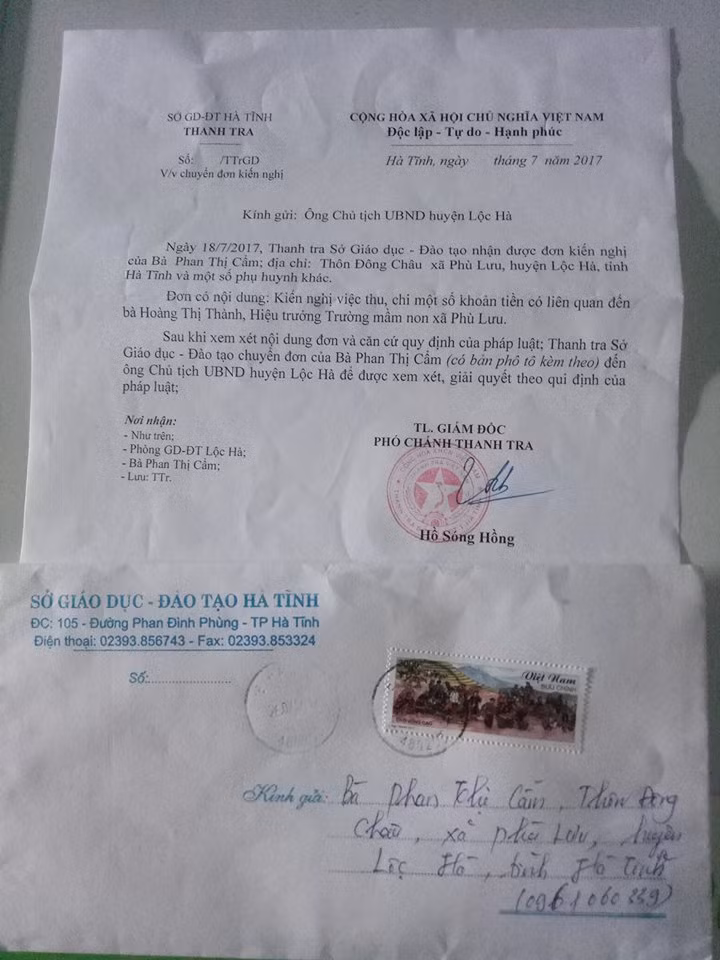 SỞ GD-ĐT HÀ TĨNH
THANH TRA
Số: /TTrGD
V/v chuyển đơn kiến nghị
CỘNG HÒA XÃ HỘI CHỦ NGHĨA VIỆT NAM
Độc lập - Tự do - Hạnh phúc
Hà Tĩnh, ngày tháng 7 năm 2017
Kính gửi: Ông Chủ tịch UBND huyện Lộc Hà
Ngày 18/7/2017, Thanh tra Sở Giáo dục - Đào tạo nhận được đơn kiến nghị
của Bà Phan Thị Cẩm; địa chỉ: Thôn Đông Châu xã Phù Lưu, huyện Lộc Hà, tỉnh
Hà Tĩnh và một số phụ huynh khác.
Đơn có nội dung: Kiến nghị việc thu, chi một số khoản tiền có liên quan đến
bà Hoàng Thị Thành, Hiệu trưởng Trường mầm non xã Phù Lưu.
Sau khi xem xét nội dung đơn và căn cứ quy định của pháp luật; Thanh tra Sở
Giáo dục - Đào tạo chuyển đơn của Bà Phan Thị Cẩm (có bản phô tô kèm theo) đến
ông Chủ tịch UBND huyện Lộc Hà để được xem xét, giải quyết theo qui định của
pháp luật;
Nơi nhận:
- Như trên;
- Phòng GD-ĐT Lộc Hà;
- Bà Phan Thị Cẩm;
- Lưu: TTr.
TL. GIÁM ĐỐC
PHÓ CHÁNH THANH TRA
Hồ Sóng Hồng
SỞ GIÁO DỤC - ĐÀO TẠO HÀ TĨNH
ĐC: 105 - Đường Phan Đình Phùng - TP Hà Tĩnh
Điện thoại: 02393.856743 - Fax: 02393.853324
Số:....................
Việt Nam
BƯU CHÍNH
Kính gửi: Bà Phan Thị Cẩm, Thôn Đông
Châu, xã Phù Lưu, huyện
Lộc Hà, tỉnh Hà Tĩnh